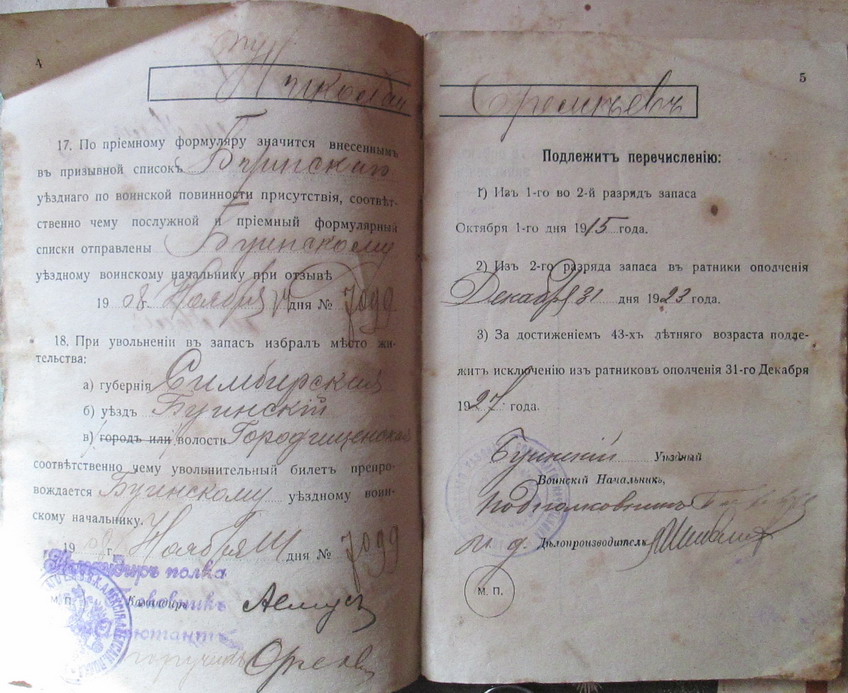 4
Николай
17. По пріемному формуляру значится внесеннымъ
въ призывной списокъ Буинскаго
уѣзднаго по воинской повинности присутствія, соотвѣт-
ственно чему послужной и пріемный формулярный
списки отправлены Буинскому
уѣздному воинскому начальнику при отзывѣ
1908 Ноября дня № 7099
18. При увольненіи въ запасъ избралъ мѣсто жи-
тельства:
а) губернія Симбирская
б) уѣздъ Буинскій
в) городъ или волость Городищенская
соотвѣтственно чему увольнительный билетъ препро-
вождается Буинскому уѣздному воин-
скому начальнику.
19 г. Ноября дня № 7099
Командиръ полка
М. П. Командиръ
Адъютантъ
поручикъ
5
Подлежитъ перечисленію:
1) Изъ 1-го во 2-й разрядъ запаса
Октября 1-го дня 1915 года.
2) Изъ 2-го разряда запаса въ ратники ополченія
Декабря 31 дня 1923 года.
3) За достиженіемъ 43-хъ лѣтняго возраста подле-
житъ исключенію изъ ратниковъ ополченія 31-го Декабря
1927 года.
Буинскій Уѣздный
Воинскій Начальникъ,
Подполковникъ
И. д. Дѣлопроизводителя
М. П.